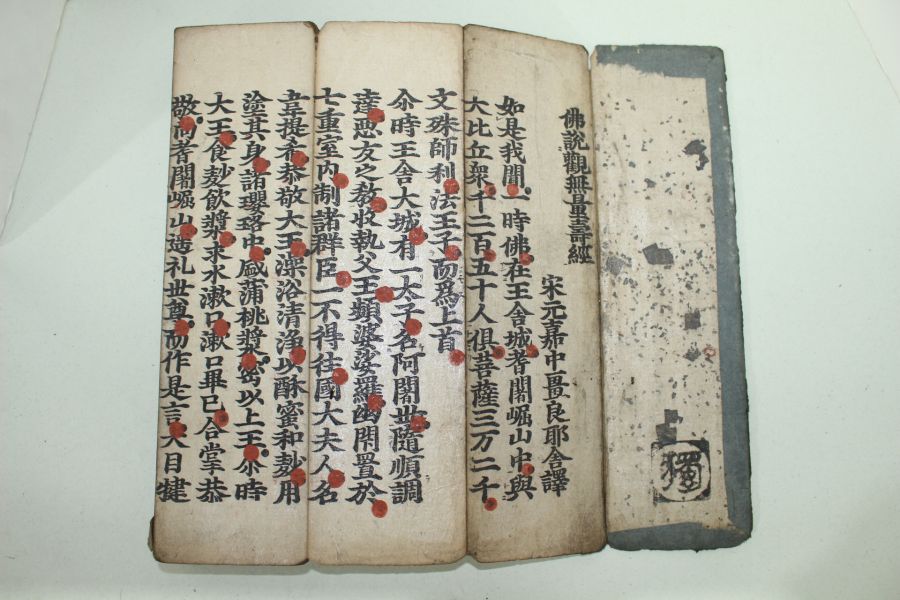 獨
佛說觀無量壽經
宋元嘉中畺良耶舍譯
如是我聞一時佛在王舍城耆闍崛山中與
大比丘衆千二百五十人俱菩薩三万二千
文殊師利法王子而爲上首
尒時王舍大城有一太子名阿闍世隨順調
達惡友之教收執父王頻婆娑羅幽閉置於
七重室內制諸群臣一不得往國大夫人名
韋提希恭敬大王澡浴清淨以酥蜜和麨用
塗其身諸瓔珞中盛蒲桃漿密以上王尒時
大王食麨飲漿求水漱口漱口畢已合掌恭
敬向耆闍崛山遙礼世尊而作是言大目揵